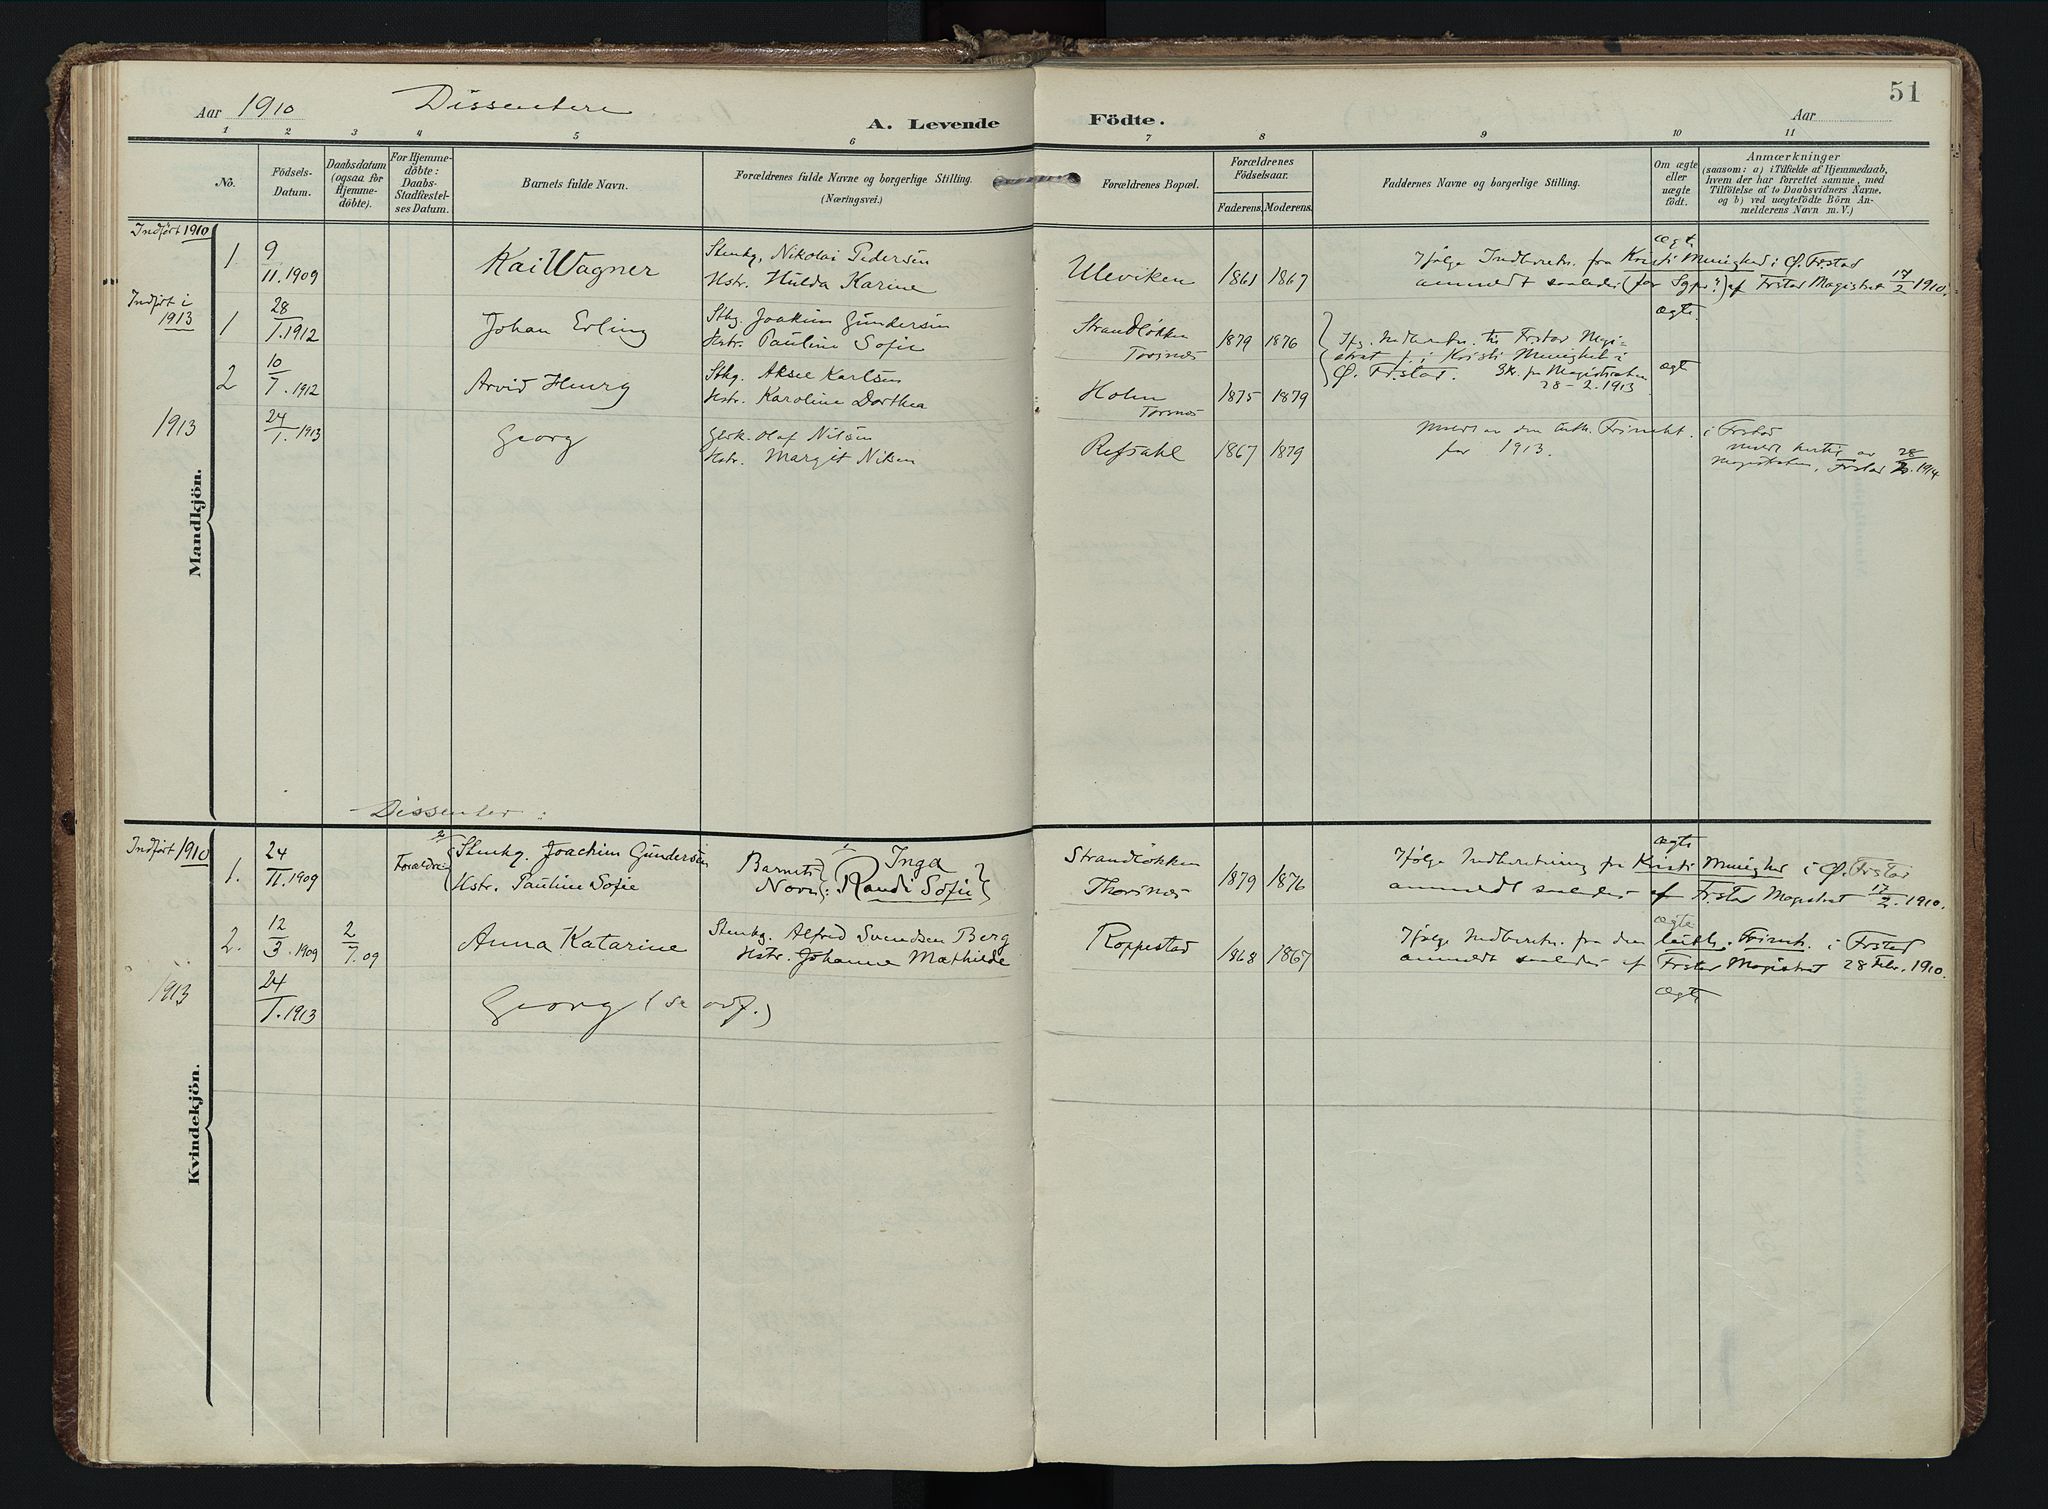 51
Aar 1910 Dissentere
A. Levende Födte.
Aar
1 2 3 4 5 6 7 8 9 10 11
No.
Födsels-
Datum.
Daabsdatum
(ogsaa for
Hjemme-
döbte).
For Hjemme-
döbte:
Daabs-
Stadfæstel-
ses Datum.
Barnets fulde Navn.
Forældrenes fulde Navne og borgerlige Stilling.
(Næringsvei.)
Forældrenes Bopæl.
Forældrenes
Födselsaar.
Faderens. Moderens.
Faddernes Navne og borgerlige Stilling.
Om ægte
eller
uægte
födt.
Anmærkninger
(saasom: a) i Tilfælde af Hjemmedaab,
hvem der har forrettet samme, med
Tilföielse af to Daabsvidners Navne,
og b) ved uægtefödte Börn An-
melderens Navn m. V.)
Mandkjön.
Indført 1910
1
9
11.1909
Kai Wagner
Stenhg. Nikolai Pedersen
Hstr. Hulda Karine
Uleviken
1861 1867
Ifølge Indberetn. fra Kristi Menighed i Ø. Fr.stad
anmeldt saaledes (for Sygn?) af Frstad Magistrat 17/2 1910.
ægte
Indført i
1913
1
28
1.1912
Johan Erling
Sthg. Joakim Gundersen
Hstr. Pauline Sofie
Strandløkken
Torsnes
1879 1876
Ifg. Indberetn. til Frstad Magi-
strat f. i Kristi Menighet i
Ø. Fr.stad. Sk. fr Magistraten
28-2.1913
ægte.
2
10
7.1912
Arvid Henry
Sthg. Aksel Karlsen
Hstr. Karoline Dorthea
Holm
Torsnes
1875 1879
ægt
1913
24
1.1913
Georg
Gerk. Olaf Nilsen
Hstr. Margit Nilsen
Refsahl
1867 1879
Meldt av den luth. Frimeht. i Frstad
for 1913.
Meldt hertil av
Magistraten, Frstad 28/2.1914
Dissenter:
Kvindekjön.
Indført 1910
1.
24
11.1909
Forældre
2/
Stenhg. Joachim Gundersen
Hstr. Pauline Sofie
Barnets
Navn:
1/
Inga
Randi Sofie
Strandløkken
Thorsnes
1879 1876
Ifølge Indberetning fra Kristi Menighed i Ø. Frstad
anmeldt saaledes af Fr.stad Magistrat 17/2.1910.
ægte
2.
12
3.1909
2
7.09
Anna Katarine
Stenhg. Alfred Svendsen Berg
Hstr. Johanne Mathilde
Roppestad
1868 1867
Ifølge Indberetn. fra den luth. Frimh. i Frstad
anmeldt saaledes af Frstad Magistrat 28 Febr. 1910.
ægte
1913
24
1.1913
Georg (se ovf.)
ægte